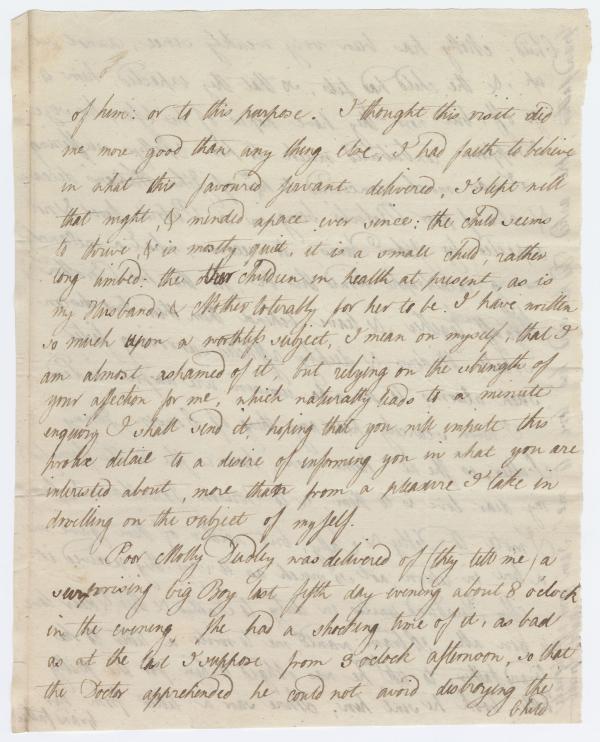 of him: or to this purpose. I thought this visit did
me more good than any thing else, I had faith to believe
in what this favoured servant delivered, I slept well
that night, & minded apace ever since: the child seems
to thrive, & is mostly quiet, it is a small child, rather
long limbed: the other children in health at present, as is
my Husband, & Mother tolerally for her to be. I have written
so much upon a worthless subject, I mean on myself, that I
am almost ashamed of it, but relying on the strength of
your affection for me, which naturally leads to a minute
enquiry I shall send it, hoping that you will impute this
prolix detail to a desire of informing you in what you are
interested about, more than from a pleasure I take in
dwelling on the subject of myself.
Poor Molly Dudley was delivered of (they tell me) a
surprising big Boy last fifth day evening about 8 o'clock
in the evening, She had a shocking time of it, as bad
as at the last I suppose from 3 o'clock afternoon, so that
the Doctor apprehended he could not avoid destroying the
Child